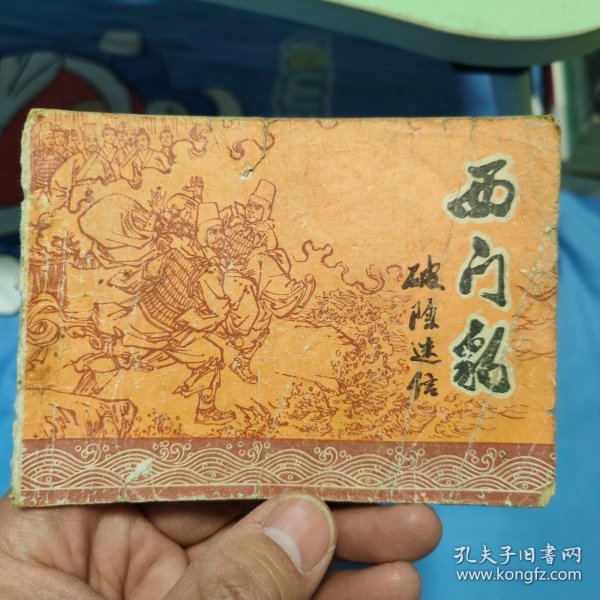 西门豹
破除迷信
孔夫子旧書网
www.kongfz.com